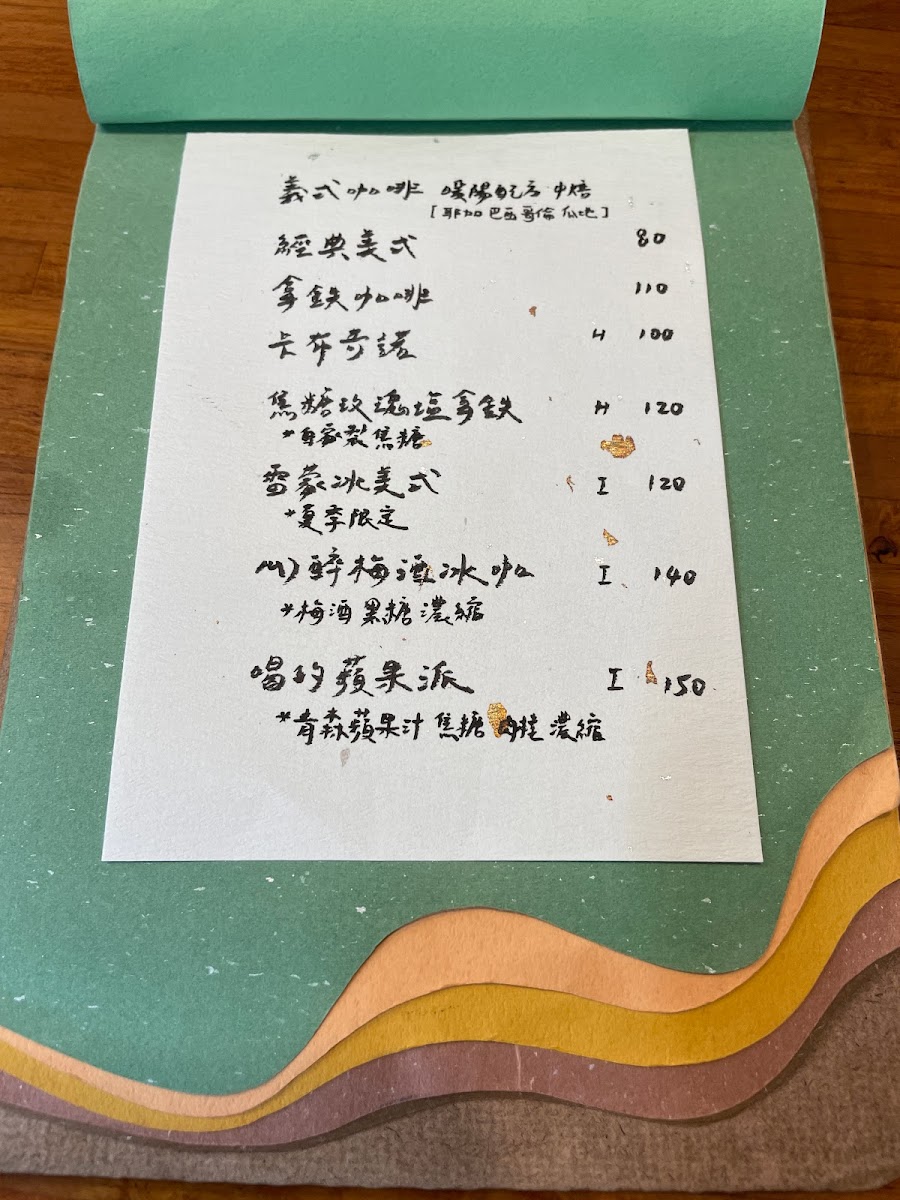 義式咖啡 暖陽配方 中焙
[耶加 巴西 哥倫 瓜地]
經典美式 80
拿鐵咖啡 110
卡布奇諾 H 100
焦糖玫瑰塩拿鐵 H 120
*自家製焦糖
雪蒙冰美式 I 120
*夏季限定
心醉梅酒冰咖 I 140
*梅酒 黑糖 濃縮
喝的蘋果派 I 150
*青森蘋果汁 焦糖 肉桂 濃縮